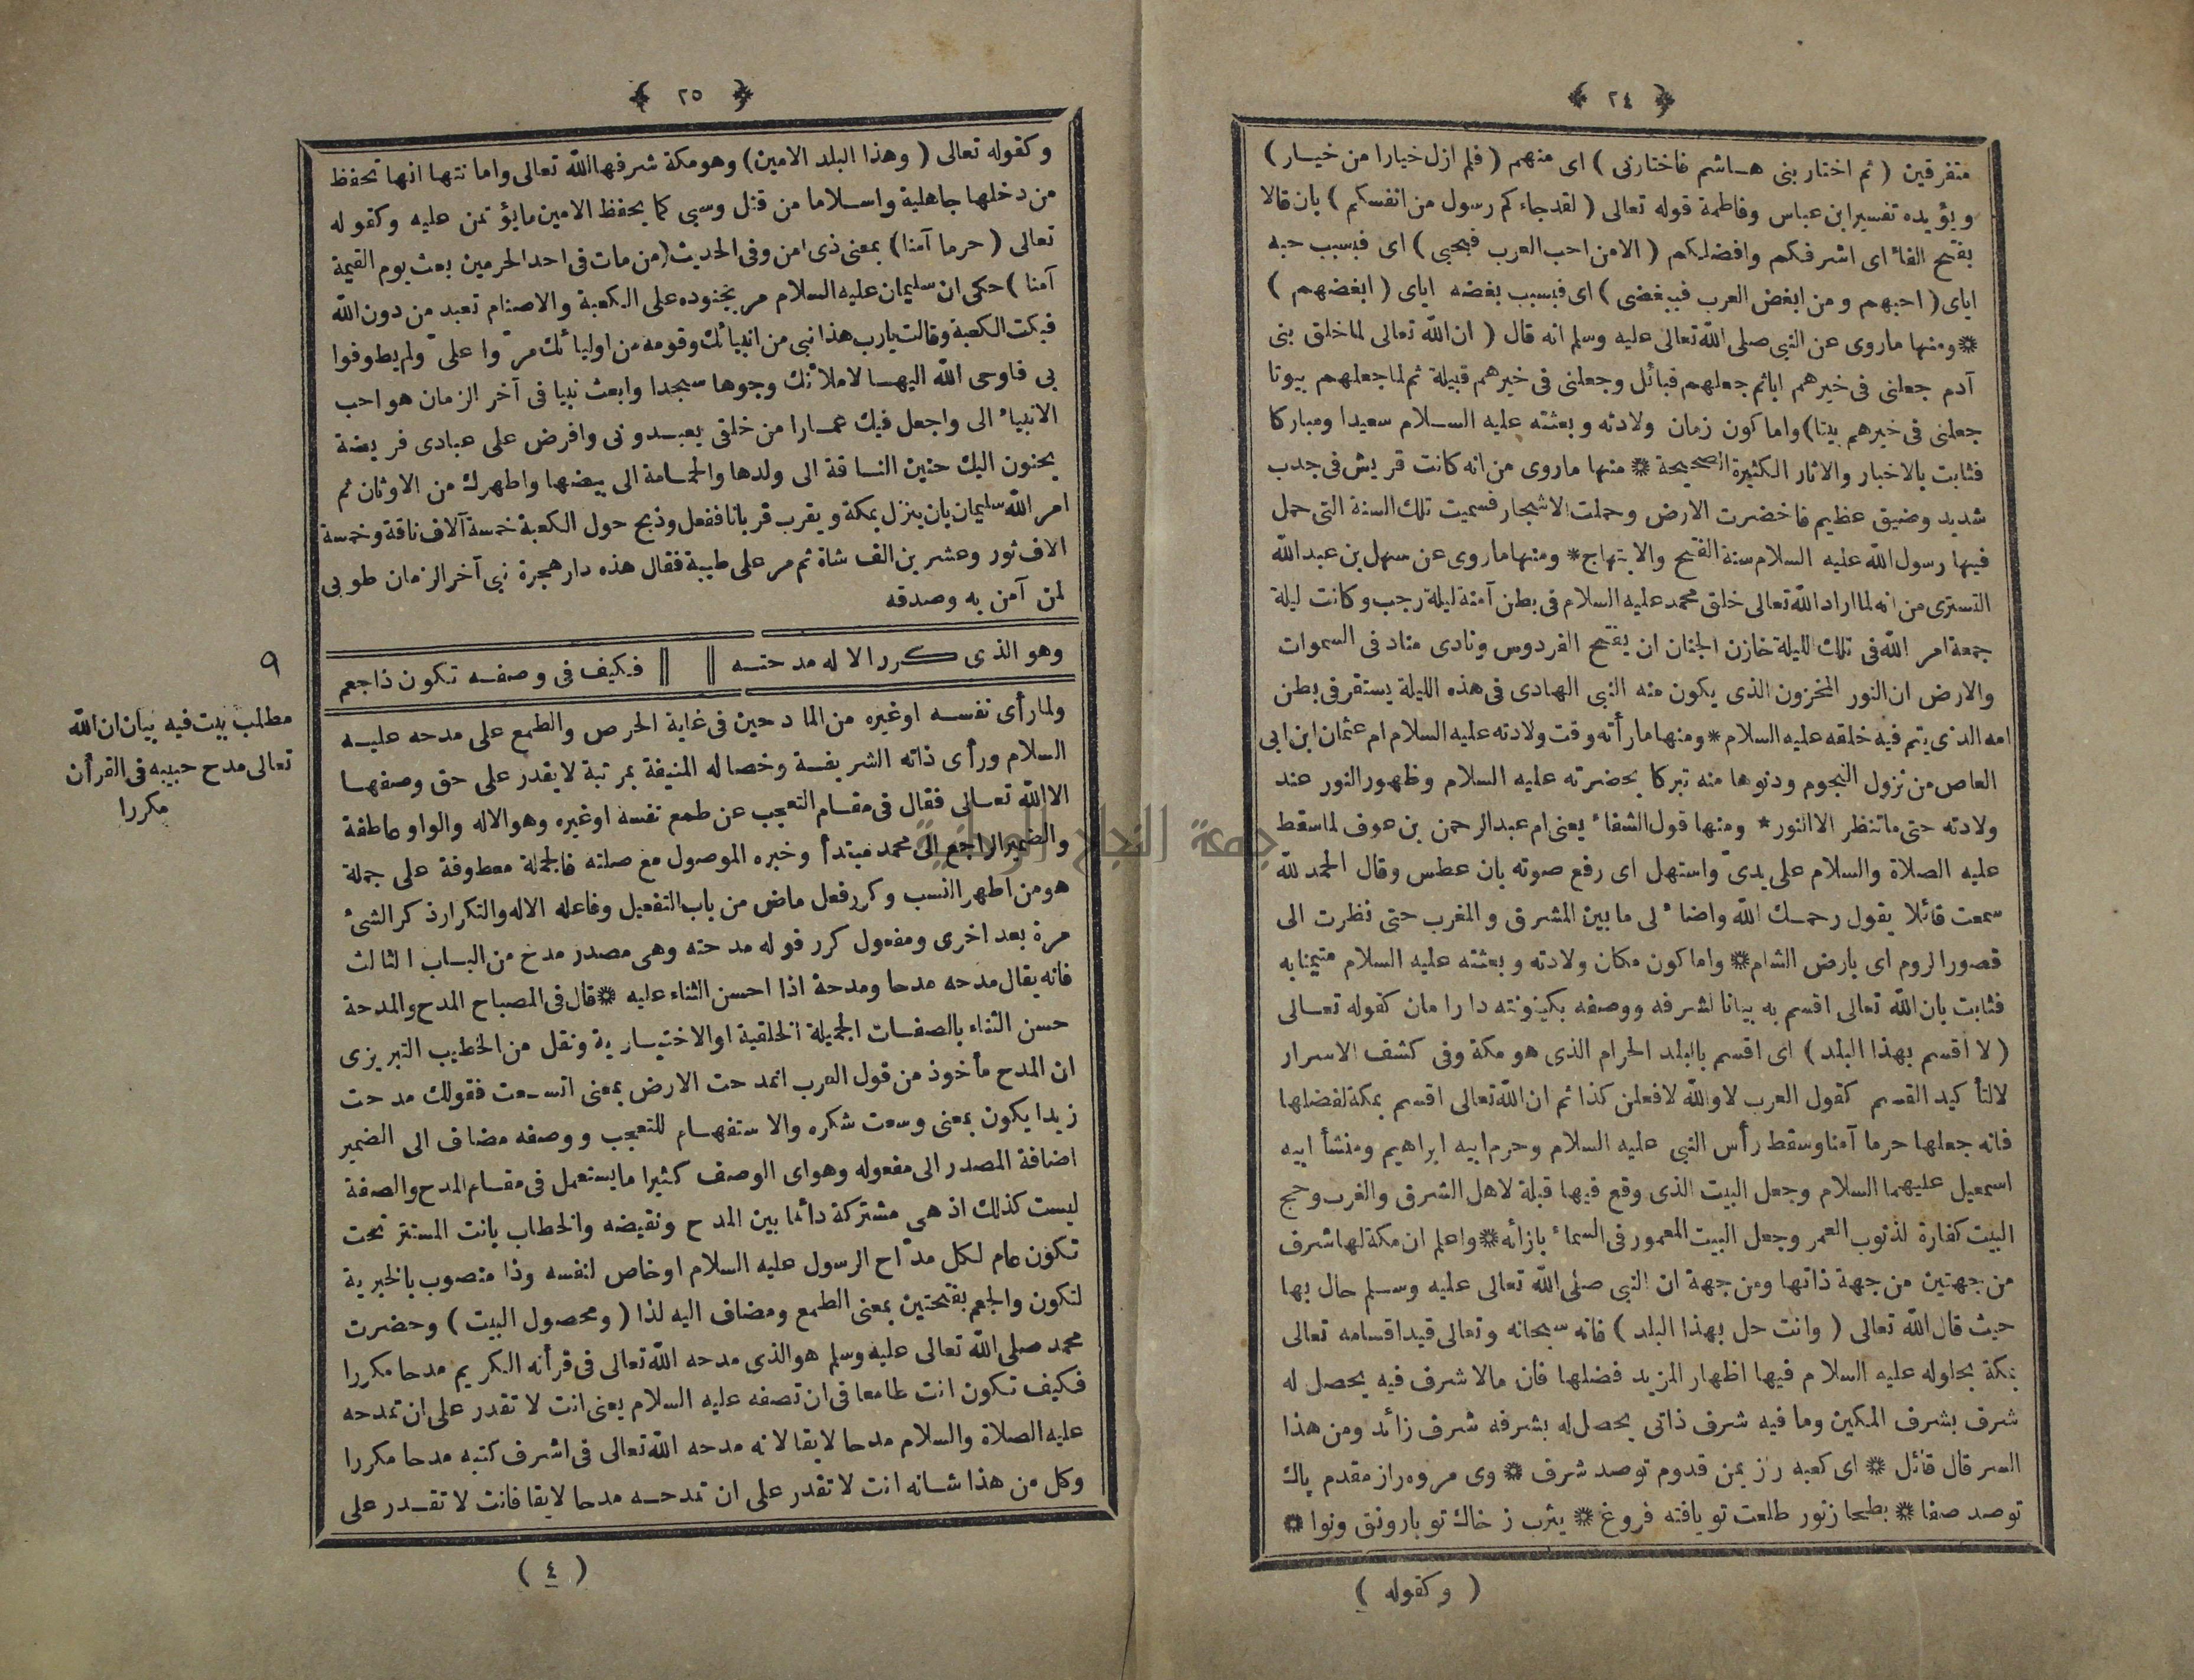 ﴿ ٢٤ ﴾
متفرقين ( ثم اختار بنى هـاشم فاختارنى ) اى منهم ( فلم ازل خيارا من خيـار )
ويؤيده تفسير ابن عباس وفاطمة قوله تعالى ( لقد جاءكم رسول من انفسكم ) بان قالا
بفتح الفاء اى اشرفكم وافضلكم ( الا من احب العرب فبحبى ) اى فبسبب حبه
اياى ( احبهم ومن ابغض العرب فببغضى ) اى فبسبب بغضه اياى ( ابغضهم )
❊ ومنها ماروى عن النبى صلى الله تعالى عليه وسلم انه قال ( ان الله تعالى لما خلق بنى
آدم جعلنى فى خيرهم اباثم جعلهم قبائل وجعلنى فى خيرهم قبيلة ثم لما جعلهم بيوتا
جعلنى فى خيرهم بيتا ) واما كون زمان ولادته وبعثته عليه السـلام سعيدا ومباركا
فثابت بالاخبار والاثار الكثيرة الصحيحة ❊ منها ماروى من انه كانت قريش فى جدب
شديد وضيق عظيم فاخضرت الارض وحملت الاشجار فسميت تلك السنة التى حمل
فيها رسول الله عليه السلام سنة الفتح والابتهاج ❊ ومنها ماروى عن سهل بن عبد الله
التسترى من انه لما اراد الله تعالى خلق محمد عليه السلام فى بطن آمنة ليلة رجب وكانت ليلة
جمعة امر الله فى تلك الليلة خازن الجنان ان يفتح الفردوس ونادى مناد فى السموات
والارض ان النور المخزون الذى يكون منه النبى الهادى فى هذه الليلة يستقر فى بطن
امه الذى يتم فيه خلقه عليه السلام ❊ ومنها مارأته وقت ولادته عليه السلام ام عثمان ابن ابى
العاص من نزول النجوم ودنوها منه تبركا بحضرته عليه السلام وظهور النور عند
ولادته حتى ماتنظر الا النور ٭ ومنها قول الشفاء يعنى ام عبد الرحمن بن عوف لما سقط
عليه الصلاة والسلام على يدىّ واستهل اى رفع صوته بان عطس وقال الحمد لله
سمعت قائلا يقول رحمـك الله واضاء لى ما بين المشرق والمغرب حتى نظرت الى
قصور الروم اى بارض الشام ❊ واما كون مكان ولادته وبعثته عليه السلام متيمنا به
فثابت بان الله تعالى اقسم به بيانا لشرفه ووصفه بكينونته دارا مان كقوله تعـالى
( لا اقسم بهذا البلد ) اى اقسم بالبلد الحرام الذى هو مكة وفى كشف الاسرار
لا لتأكيد القسم كقول العرب لا والله لافعلن كذا ثم ان الله تعالى اقسم بمكة لفضلها
فانه جعلها حرما آمنا وسقط رأس النبى عليه السلام وحرم ابيه ابراهيم ومنشأ ابيه
اسمعيل عليهما السلام وجعل البيت الذى وقع فيها قبلة لاهل الشرق والغرب وحج
البيت كفارة لذنوب العمر وجعل البيت المعمور فى السماء بازائه ❊ واعلم ان مكة لها شرف
من جهتين من جهة ذاتها ومن جهة ان النبى صلى الله تعالى عليه وسـلم حال بها
حيث قال الله تعالى ( وانت حل بهذا البلد ) فانه سبحانه وتعالى قيد اقسامه تعالى
بمكة بحلوله عليه السلام فيها اظهار المزيد فضلها فان مالا شرف فيه يحصل له
شرف بشرف المكين وما فيه شرف ذاتى يحصل له بشرفه شرف زائد ومن هذا
السر قال قائل ❊ اى كعبه راز يمن قدوم توصد شرف ❊ وى مروه راز مقدم پاك
توصد صفا ❊ بطحا زنور طلعت تو يافته فروغ ❊ يثرب ز خاك تو با رونق ونوا ❊
( وكقوله )
﴿ ٢٥ ﴾
وكقوله تعالى ( وهذا البلد الامين ) وهو مكة شرفها الله تعالى واما نتها انها تحفظ
من دخلها جاهلية واسـلاما من قتل وسبى كما يحفظ الامين مايؤتمن عليه وكقوله
تعالى ( حرما آمنا ) بمعنى ذى امن وفى الحديث ( من مات فى احد الحرمين بعث يوم القيمة
آمنا ) حكى ان سليمان عليه السلام مر بجنوده على الكعبة والاصنام تعبد من دون الله
فبكت الكعبة وقالت يارب هذا نبى من انبيائك وقومه من اوليائك مرّوا علىّ ولم يطوفوا
بى فاوحى الله اليهـا لاملائك وجوها سجدا وابعث نبيا فى آخر الزمان هو احب
الانبياء الى واجعل فيك عمـارا من خلقى يعبـدونى وافرض على عبادى فريضة
يحنون اليك حنين النـاقة الى ولدها والحمـامة الى بيضها واطهرك من الاوثان ثم
امر الله سليمان بان ينزل بمكة ويقرب قربانا ففعل وذبح حول الكعبة خمسة آلاف ناقة وخمسة
الاف ثور وعشرين الف شاة ثم مر على طيبة فقال هذه دار هجرة نبى آخر الزمان طوبى
لمن آمن به وصدقه
وهو الذى كرر الاله مدحتـه ‖ ‖ فكيف فى وصفـه تكون ذاجعم
ولما رأى نفسـه اوغيره من الماد حين فى غاية الحرص والطمع على مدحه عليـه
السلام ورأى ذاته الشريفـة وخصاله المنيفة بمرتبة لا يقدر على حق وصفهـا
الا الله تعـالى فقال فى مقـام التعجب عن طمع نفسه اوغيره وهو الاله والواو عاطفة
والضمير الراجع الى محمد مبتدأ وخبره الموصول مع صلته فالجملة معطوفة على جملة
هو من اطهر النسب وكرر فعل ماض من باب التفعيل وفاعله الاله والتكرار ذكر الشئ
مرة بعد اخرى ومفعول كرر قوله مدحته وهى مصدر مدح من البـاب الثالث
فانه يقال مدحه مدحا ومدحة اذا احسن الثناء عليه ❊ قال فى المصباح المدح والمدحة
حسن الثناء بالصفـات الجميلة الخلقية اوالاختيـارية ونقل من الخطيب التبريزى
ان المدح مأخوذ من قول العرب انمدحت الارض بمعنى اتسـعت فقولك مدحت
زيدا يكون بمعنى وسعت شكره والاستفهـام للتعجب ووصفه مضاف الى الضمير
اضافة المصدر الى مفعوله وهو اى الوصف كثيرا مايستعمل فى مقـام المدح والصفة
ليست كذلك اذ هى مشتركة دائما بين المدح ونقيضه والخطاب بانت المستتر تحت
تكون عام لكل مدّاح الرسول عليه السلام اوخاص لنفسه وذا منصوب بالخبرية
لتكون والجعم بفتحتين بمعنى الطمع ومضاف اليه لذا ( ومحصول البيت ) وحضرت
محمد صلى الله تعالى عليه وسلم هو الذى مدحه الله تعالى فى قرأنه الكريم مدحا مكررا
فكيف تكون انت طامعا فى ان تصفه عليه السلام يعنى انت لا تقدر على ان تمدحه
عليه الصلاة والسلام مدحا لايقا لانه مدحه الله تعالى فى اشرف كتبه مدحا مكررا
وكل من هذا شـانه انت لا تقدر على ان تمدحـه مدحا لايقا فانت لا تقـدر على
( ٤ )
٩
مطلب بيت فيه بيان ان الله
تعالى مدح حبيبه فى القرأن
مكررا